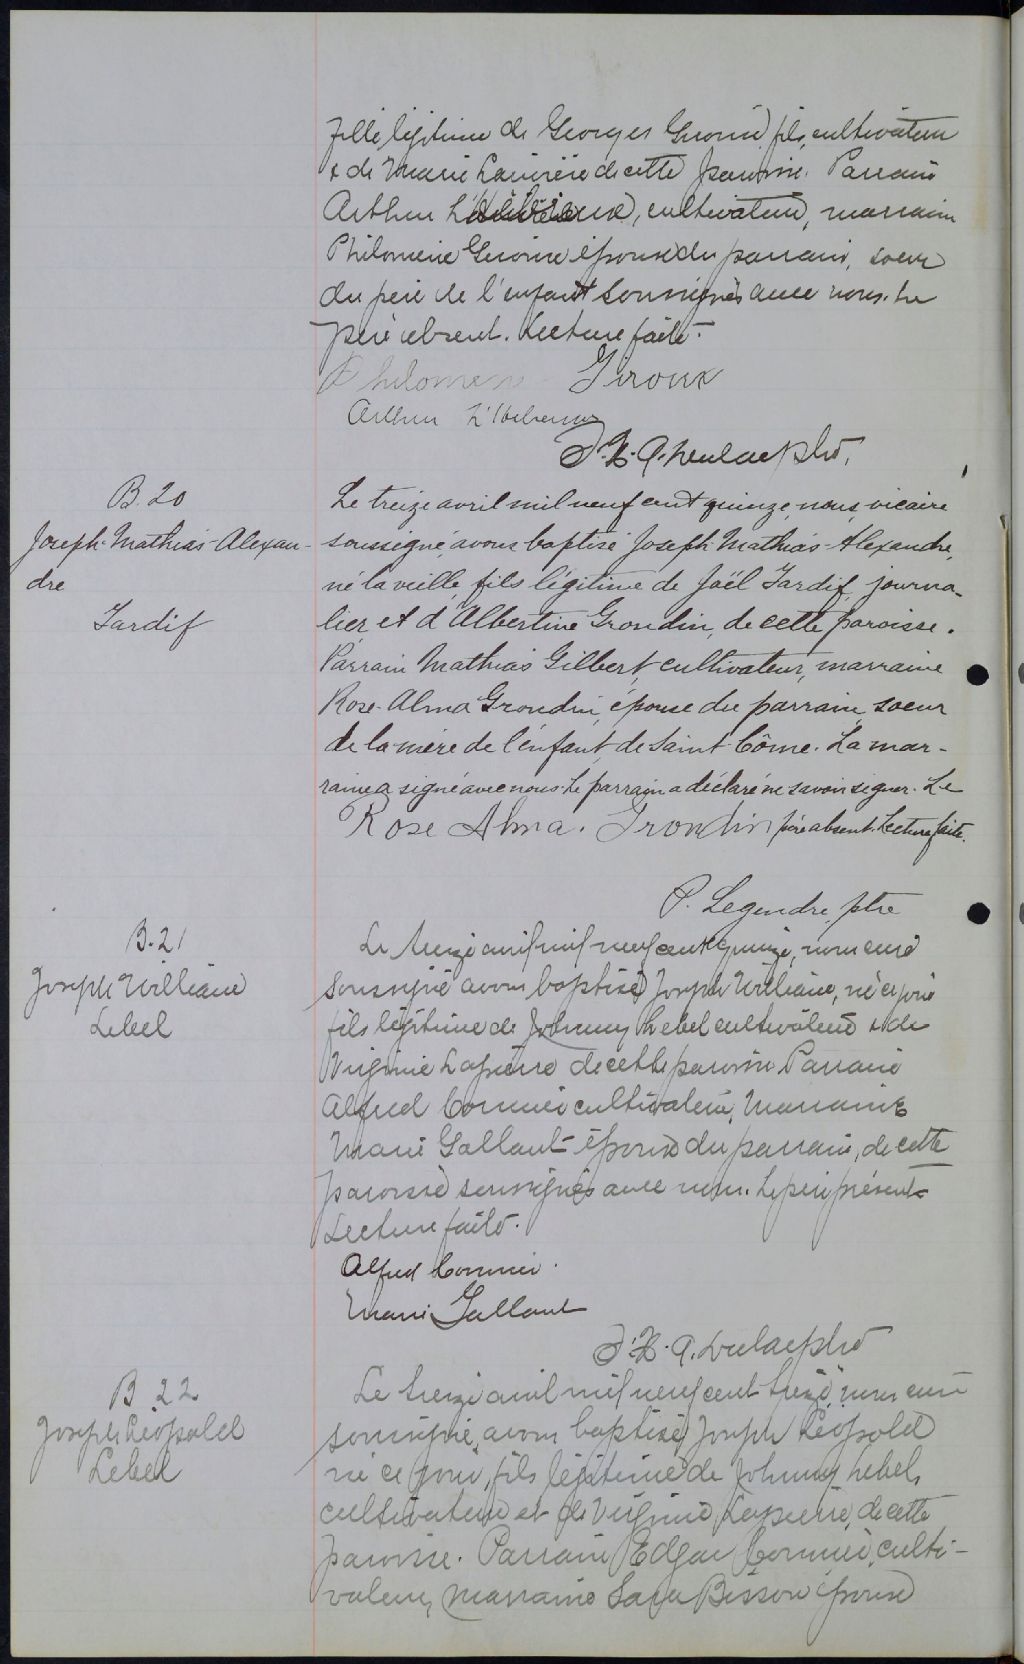 fille légitime de Georges Giroux fils, cultivateur
& de Marie Larivière de cette paroisse. Parrain
Arthur L', cultivateur, marraine
Philomène Giroux épouse du parrain, soeur
du père de l'enfant soussignés avec nous. Le
père absent. Lecture faite.
Philomène Giroux
Arthur L'Heureux
ptre.
B. 20
Joseph-Mathias-Alexan-
dre
Tardif
Le treize avril mil neuf cent quinze, nous, vicaire
soussigné, avons baptisé Joseph-Mathias-Alexandre,
né la veille, fils légitime de Joël Tardif, journa-
lier et d'Albertine Grondin, de cette paroisse.
Parrain Mathias Gilbert, cultivateur, marraine
Rose-Alma Grondin, épouse du parrain, soeur
de la mère de l'enfant, de Saint-Côme. La mar-
raine a signé avec nous. Le parrain a déclaré ne savoir signer. Le
Rose Alma. Grondin père absent. Lecture faite.
P. Legendre ptre
B. 21
Joseph William
Lebel
Le treize avril mil neuf cent quinze, nous curé
soussigné avons baptisé Joseph William, né ce jour
fils légitime de Johnny Lebel cultivateur & de
Virginie Lapierre de cette paroisse. Parrain
Alfred Cormier cultivateur, Marraine
Marie Gallant épouse du parrain, de cette
paroisse soussignés avec nous. Le père présent
Lecture faite.
Alfred Cormier.
Marie Gallant
ptre
B 22
Joseph Léopold
Lebel
Le treize avril mil neuf cent treize, nous curé
soussigné, avons baptisé Joseph Léopold
né ce jour, fils légitime de Johnny Lebel,
cultivateur et de Virginie Lapierre, de cette
paroisse. Parrain Edgar Cormier, culti-
vateur, marraine Sara Bisson épouse